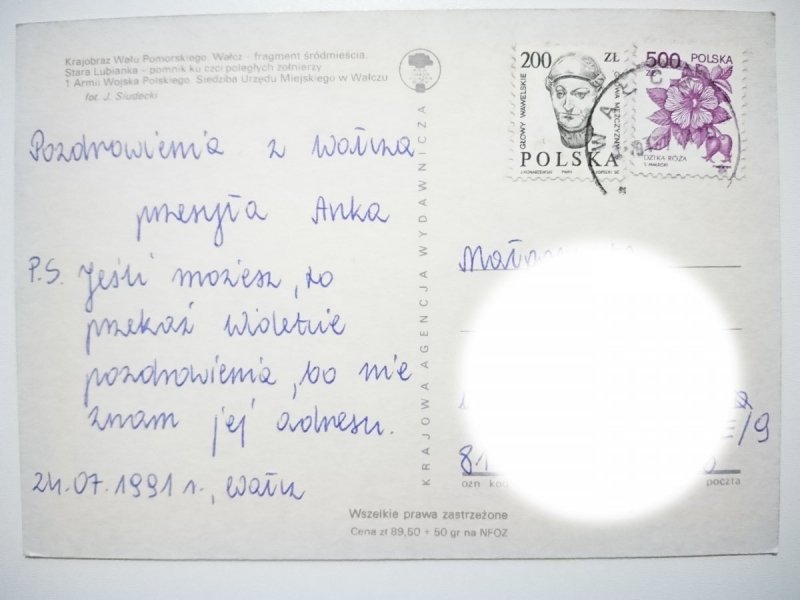 Krajobraz Wału Pomorskiego. Wałcz - fragment śródmieścia.
Stara Lubianka - pomnik ku czci poległych żołnierzy
1 Armii Wojska Polskiego. Siedziba Urzędu Miejskiego w Wałczu
fot. J. Siudecki
Pozdrowienia z Wałcza
przesyła Anka
P.S. Jeśli możesz, to
przekaż Wioletnie
pozdrowienia, bo nie
znam jej adresu.
24.07.1991 r., Wałcz
KRAJOWA AGENCJA WYDAWNICZA
Wszelkie prawa zastrzeżone
Cena zł 89,50 + 50 gr na NFOZ
200 ZŁ
GŁOWY WAWELSKIE
GŁOWA MĘŻCZYZNY
POLSKA
500 POLSKA
ZŁ
DZIKA RÓŻA
WAŁCZ
E/9
81
ozn kod
poczta